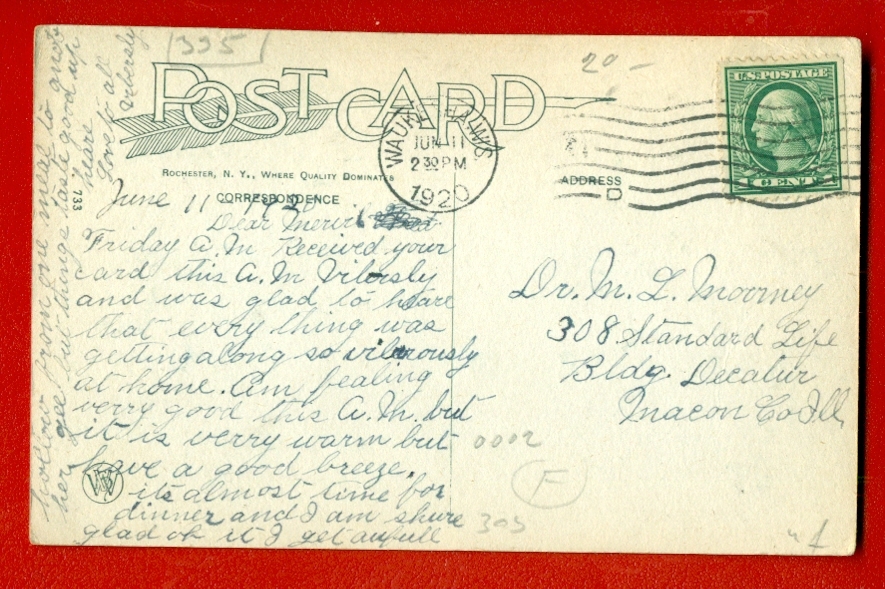 335
20 -
POST CARD
U.S. POSTAGE
1 CENT 1
WAUKESHA, WIS
JUN 11
2 30 PM
1920
ROCHESTER, N. Y., WHERE QUALITY DOMINATES
ADDRESS
D
733
CORRESPONDENCE
June 11 1920
Dear Meril
Friday A. M Received your
card this A. M Vibersly
and was glad to heare
that every thing was
getting along so
at home. Am fealing
verry good this A. M. but
it is verry warm but
have a good breeze.
its almost time for
dinner and I am shure
glad of it I get awfull
hollow from one meal to anot
her gee but things taste good up
heare
Love to all
Vibersly
Dr. M. L. Moorney
308 Standard Life
Bldg. Decatur
Macon Co Ill,
0002
F
305
W